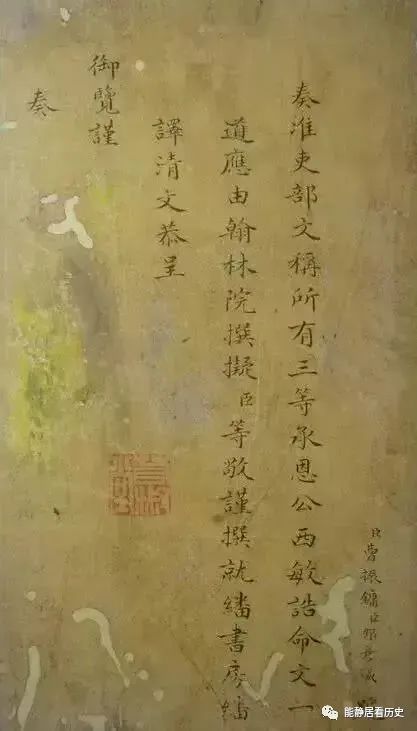 臣曹振鏞臣
奏淮吏部文稱所有三等承恩公西敏誥命文一
道應由翰林院撰擬臣等敬謹撰就繙書房繙
譯清文恭呈
御覽謹
奏
能静居看历史